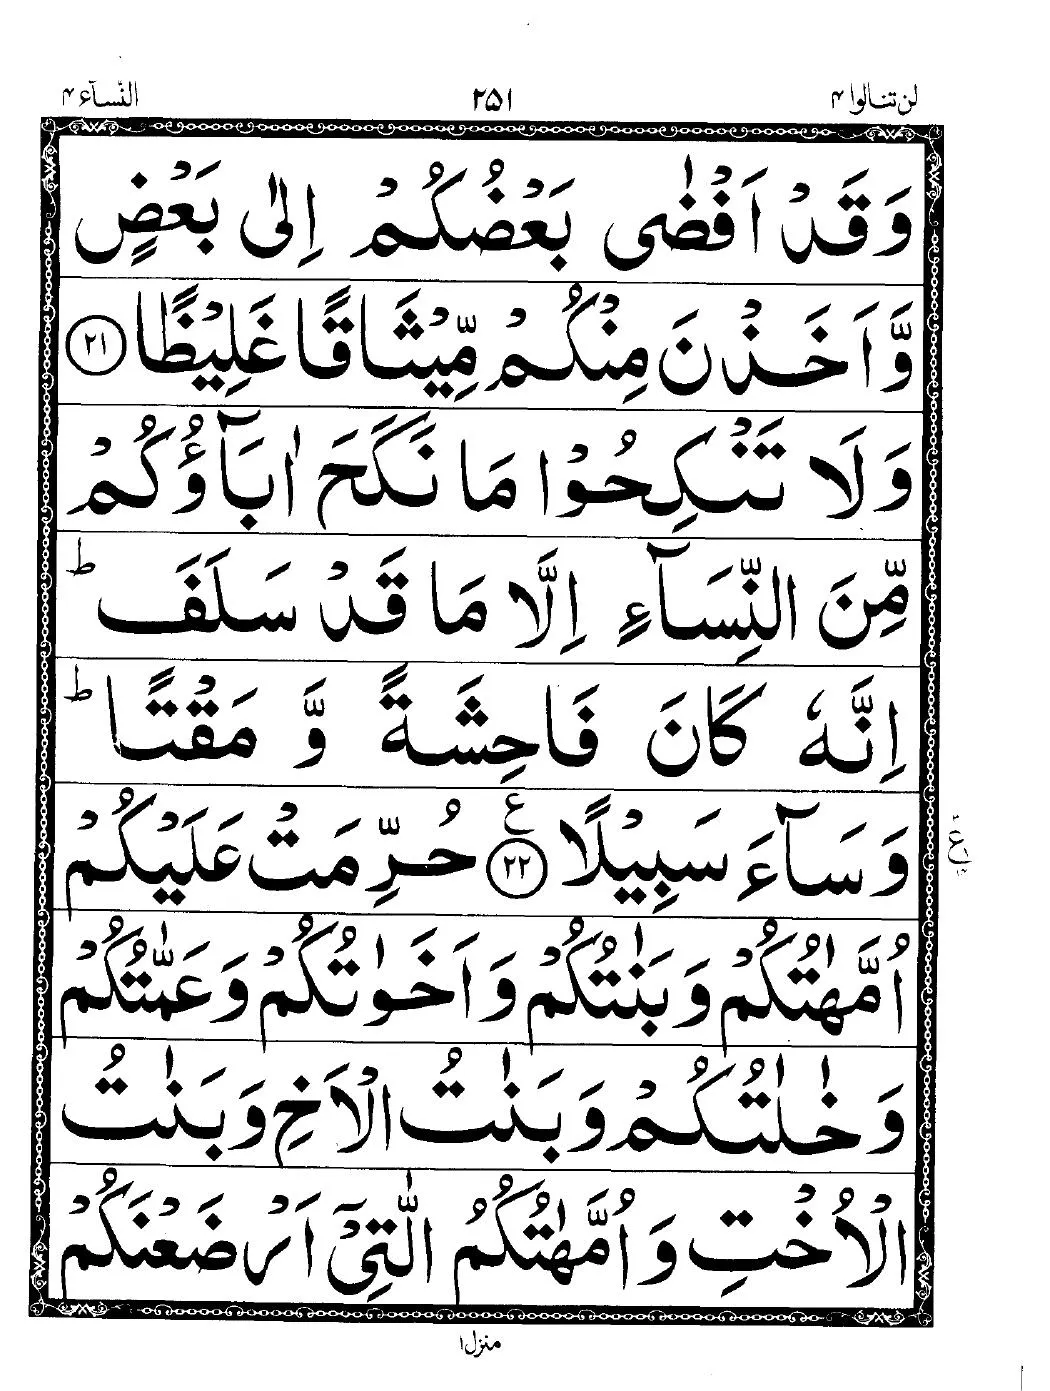 لن تنالوا ۴ ۲۵۱ النسآء ۴
وَقَدْ اَفْضٰى بَعْضُكُمْ اِلٰى بَعْضٍ
وَّاَخَذْنَ مِنْكُمْ مِّيْثَاقًا غَلِيْظًا ۲۱
وَلَا تَنْكِحُوْا مَا نَكَحَ اٰبَآؤُكُمْ
مِّنَ النِّسَآءِ اِلَّا مَا قَدْ سَلَفَ ؕ
اِنَّهٗ كَانَ فَاحِشَةً وَّ مَقْتًا ؕ
وَسَآءَ سَبِيْلًا ۲۲ ع حُرِّمَتْ عَلَيْكُمْ
اُمَّهٰتُكُمْ وَبَنٰتُكُمْ وَاَخَوٰتُكُمْ وَعَمّٰتُكُمْ
وَخٰلٰتُكُمْ وَبَنٰتُ الْاَخِ وَبَنٰتُ
الْاُخْتِ وَاُمَّهٰتُكُمُ الّٰتِيْۤ اَرْضَعْنَكُمْ
منزل ۱